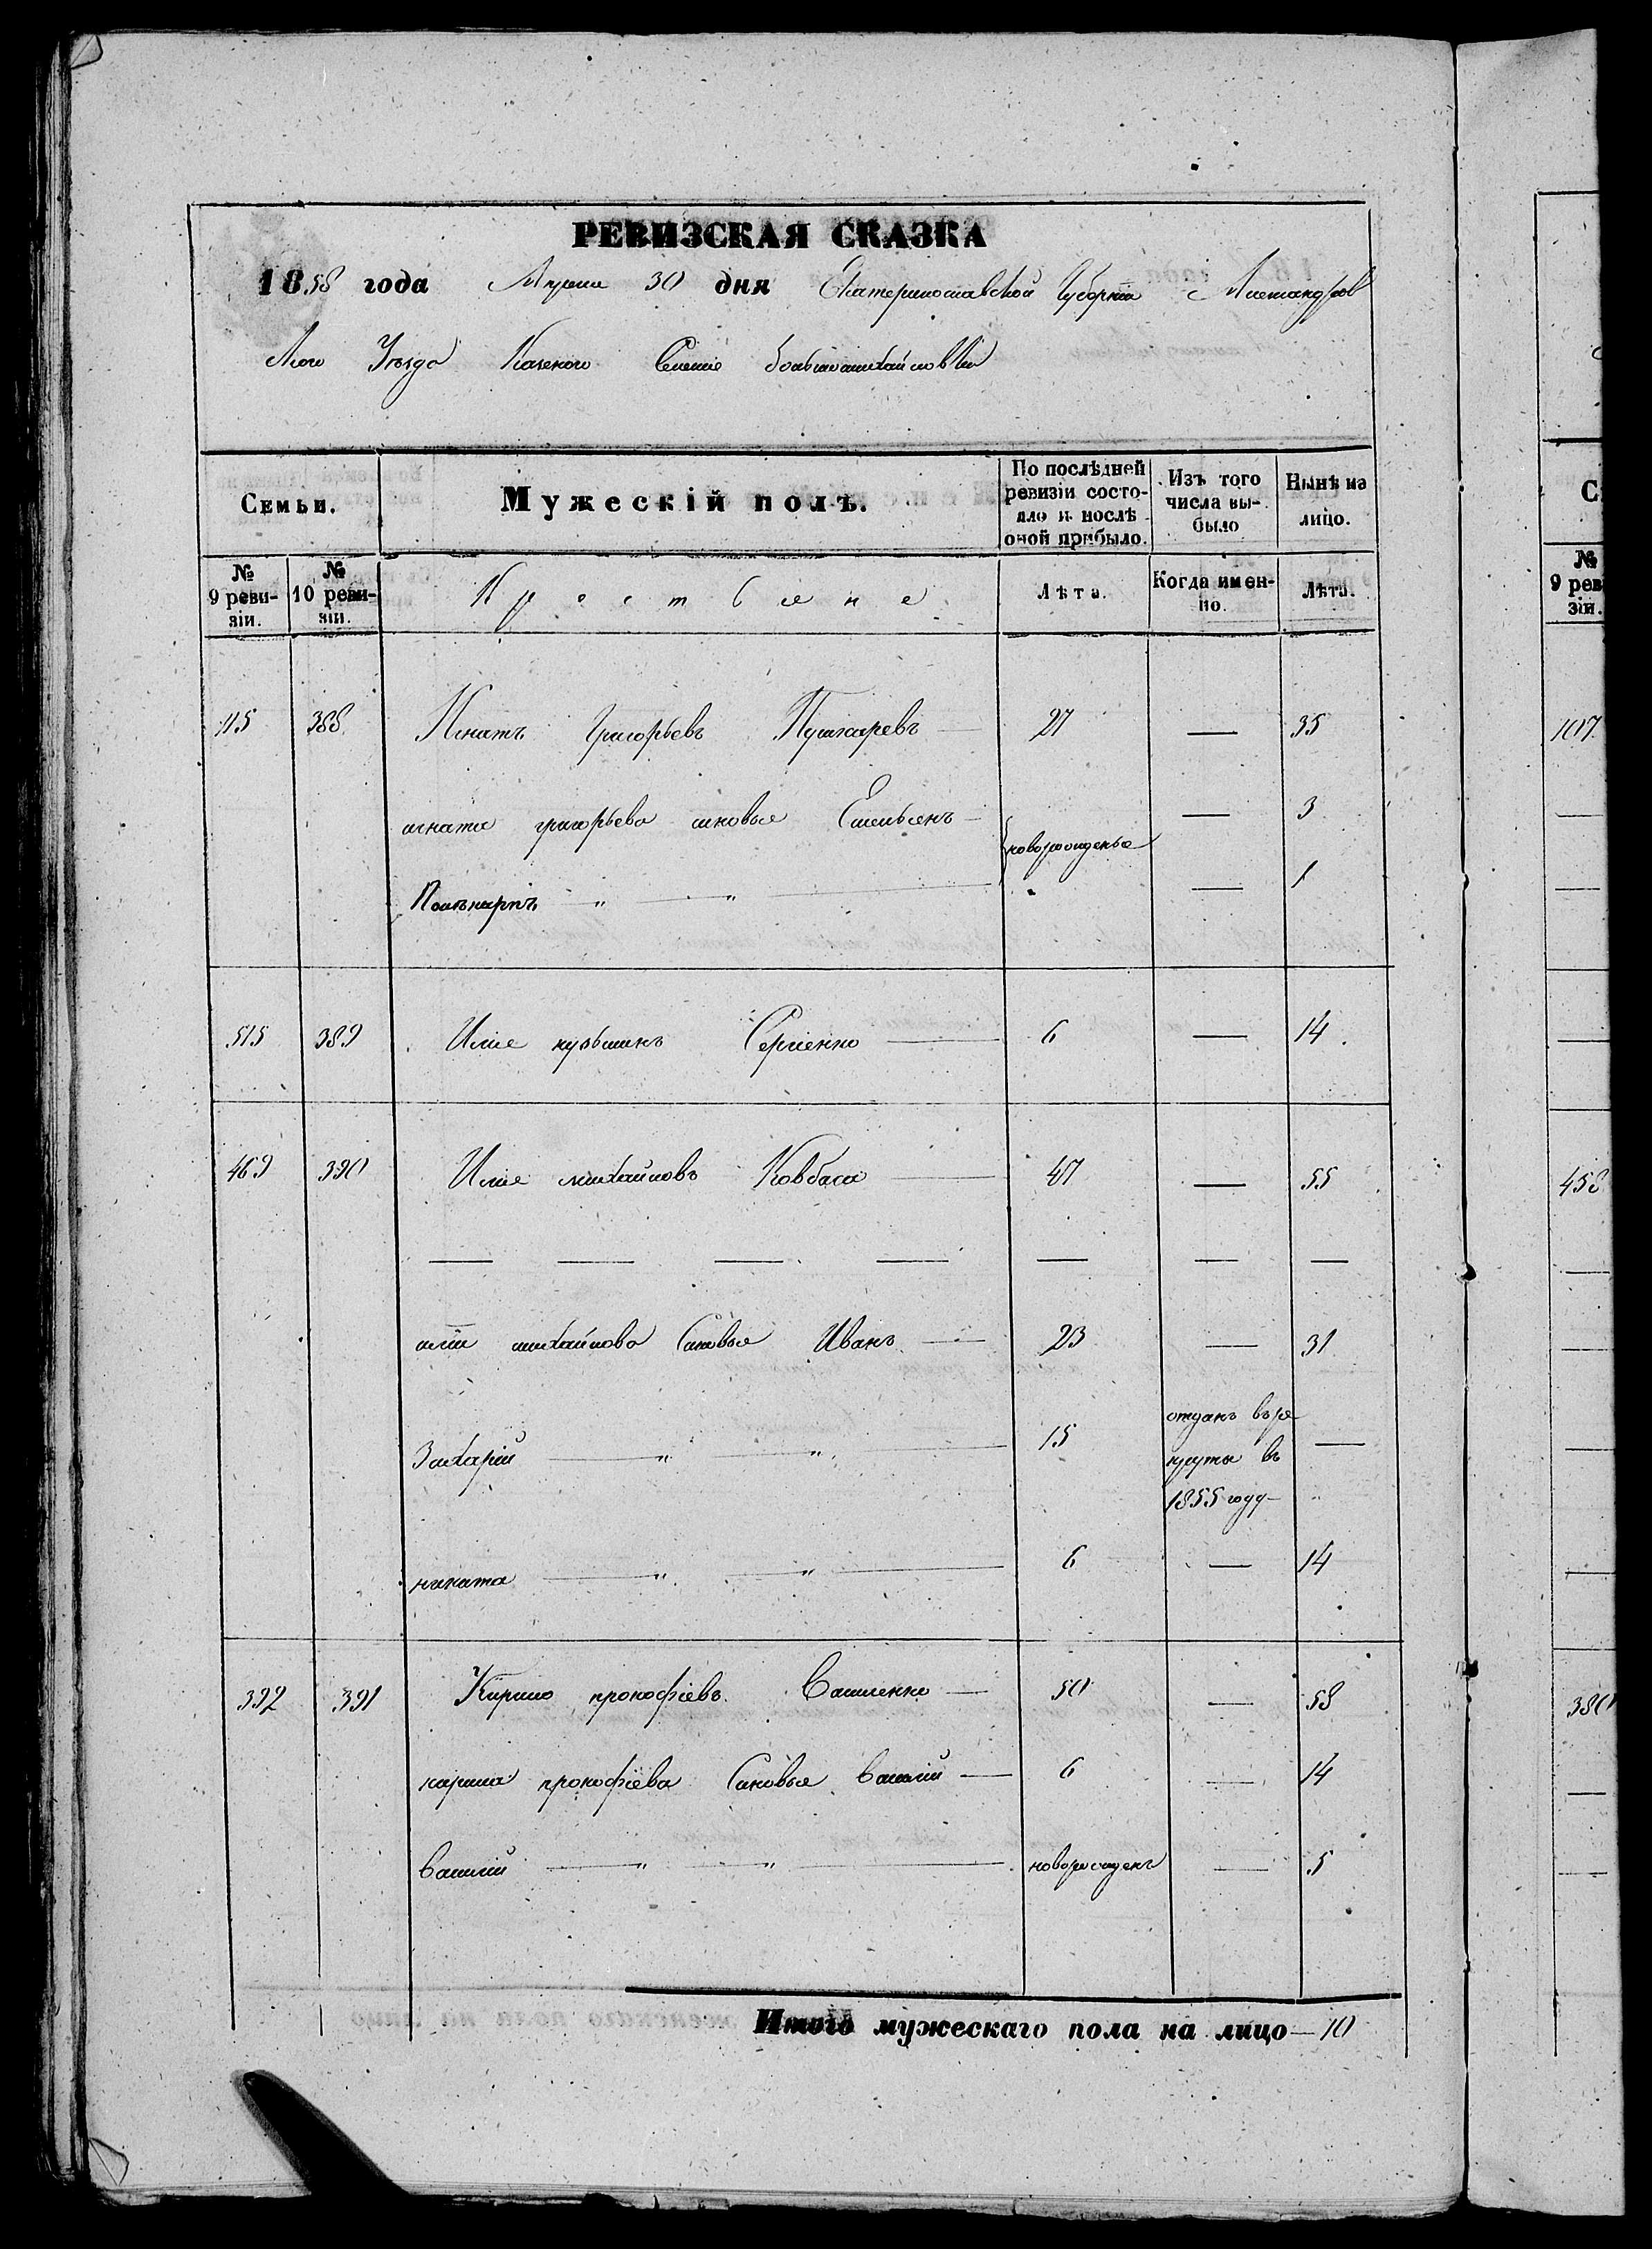 РЕВИЗСКАЯ СКАЗКА
1858 года Апреля 30 дня Екатеринославской Губернiи Александров
ского Уѣзда Казеного Селенiе большомихайловки
Семьи.
Мужескiй полъ.
По послѣдней ревизiи состояло и послѣ оной прибыло.
Изъ того числа вы-
было
Нынѣ на лицо.
№ 9 реви-
зiи.
№ 10 реви-
зiи.
Крестьяне
Лѣта.
Когда имен-
но.
Лѣта.
115 388 Игнатъ Григорьевъ Пушкаревъ — 27 — 35
игната григорьева сыновья Емельянъ — новорожденые — 3
Полькарпъ — " — " — — 1
515 389 Илiя кузьминъ Сергiенко — 6 — 14
469 390 Илiя михайловъ Ковбаса — 47 — 55
— — — — — — —
илiи михайлова Сыновья Иванъ — 23 — 31
Захарiй — " — " — 15 отданъ въ ре
круты въ
1855 году —
никита — " — " — 6 — 14
392 391 Кирило прокофiевъ Василенко — 50 — 58
кирила прокофiева Сыновья василiй — 6 — 14
василiй — " — " — новорожденъ — 5
Итого мужескаго пола на лицо — 10
№
9 рев
зiи.
107
458
380